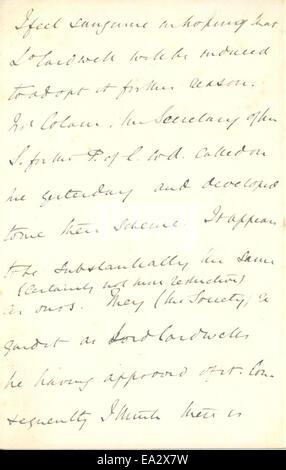 I feel sanguine in hoping that
Ld Cardwell will be induced
to adopt it for this reason.
Mr Colam, the Secretary of the
S. for the P. of C. to A. called on
me yesterday and developed
to me their scheme. It appears
to be substantially the same
(certainly not more restrictive)
as ours. They (the Society) re
gard it as Lord Cardwells
he having approved of it. Con-
sequently I think there is
alamy stock photo
EA2X7W